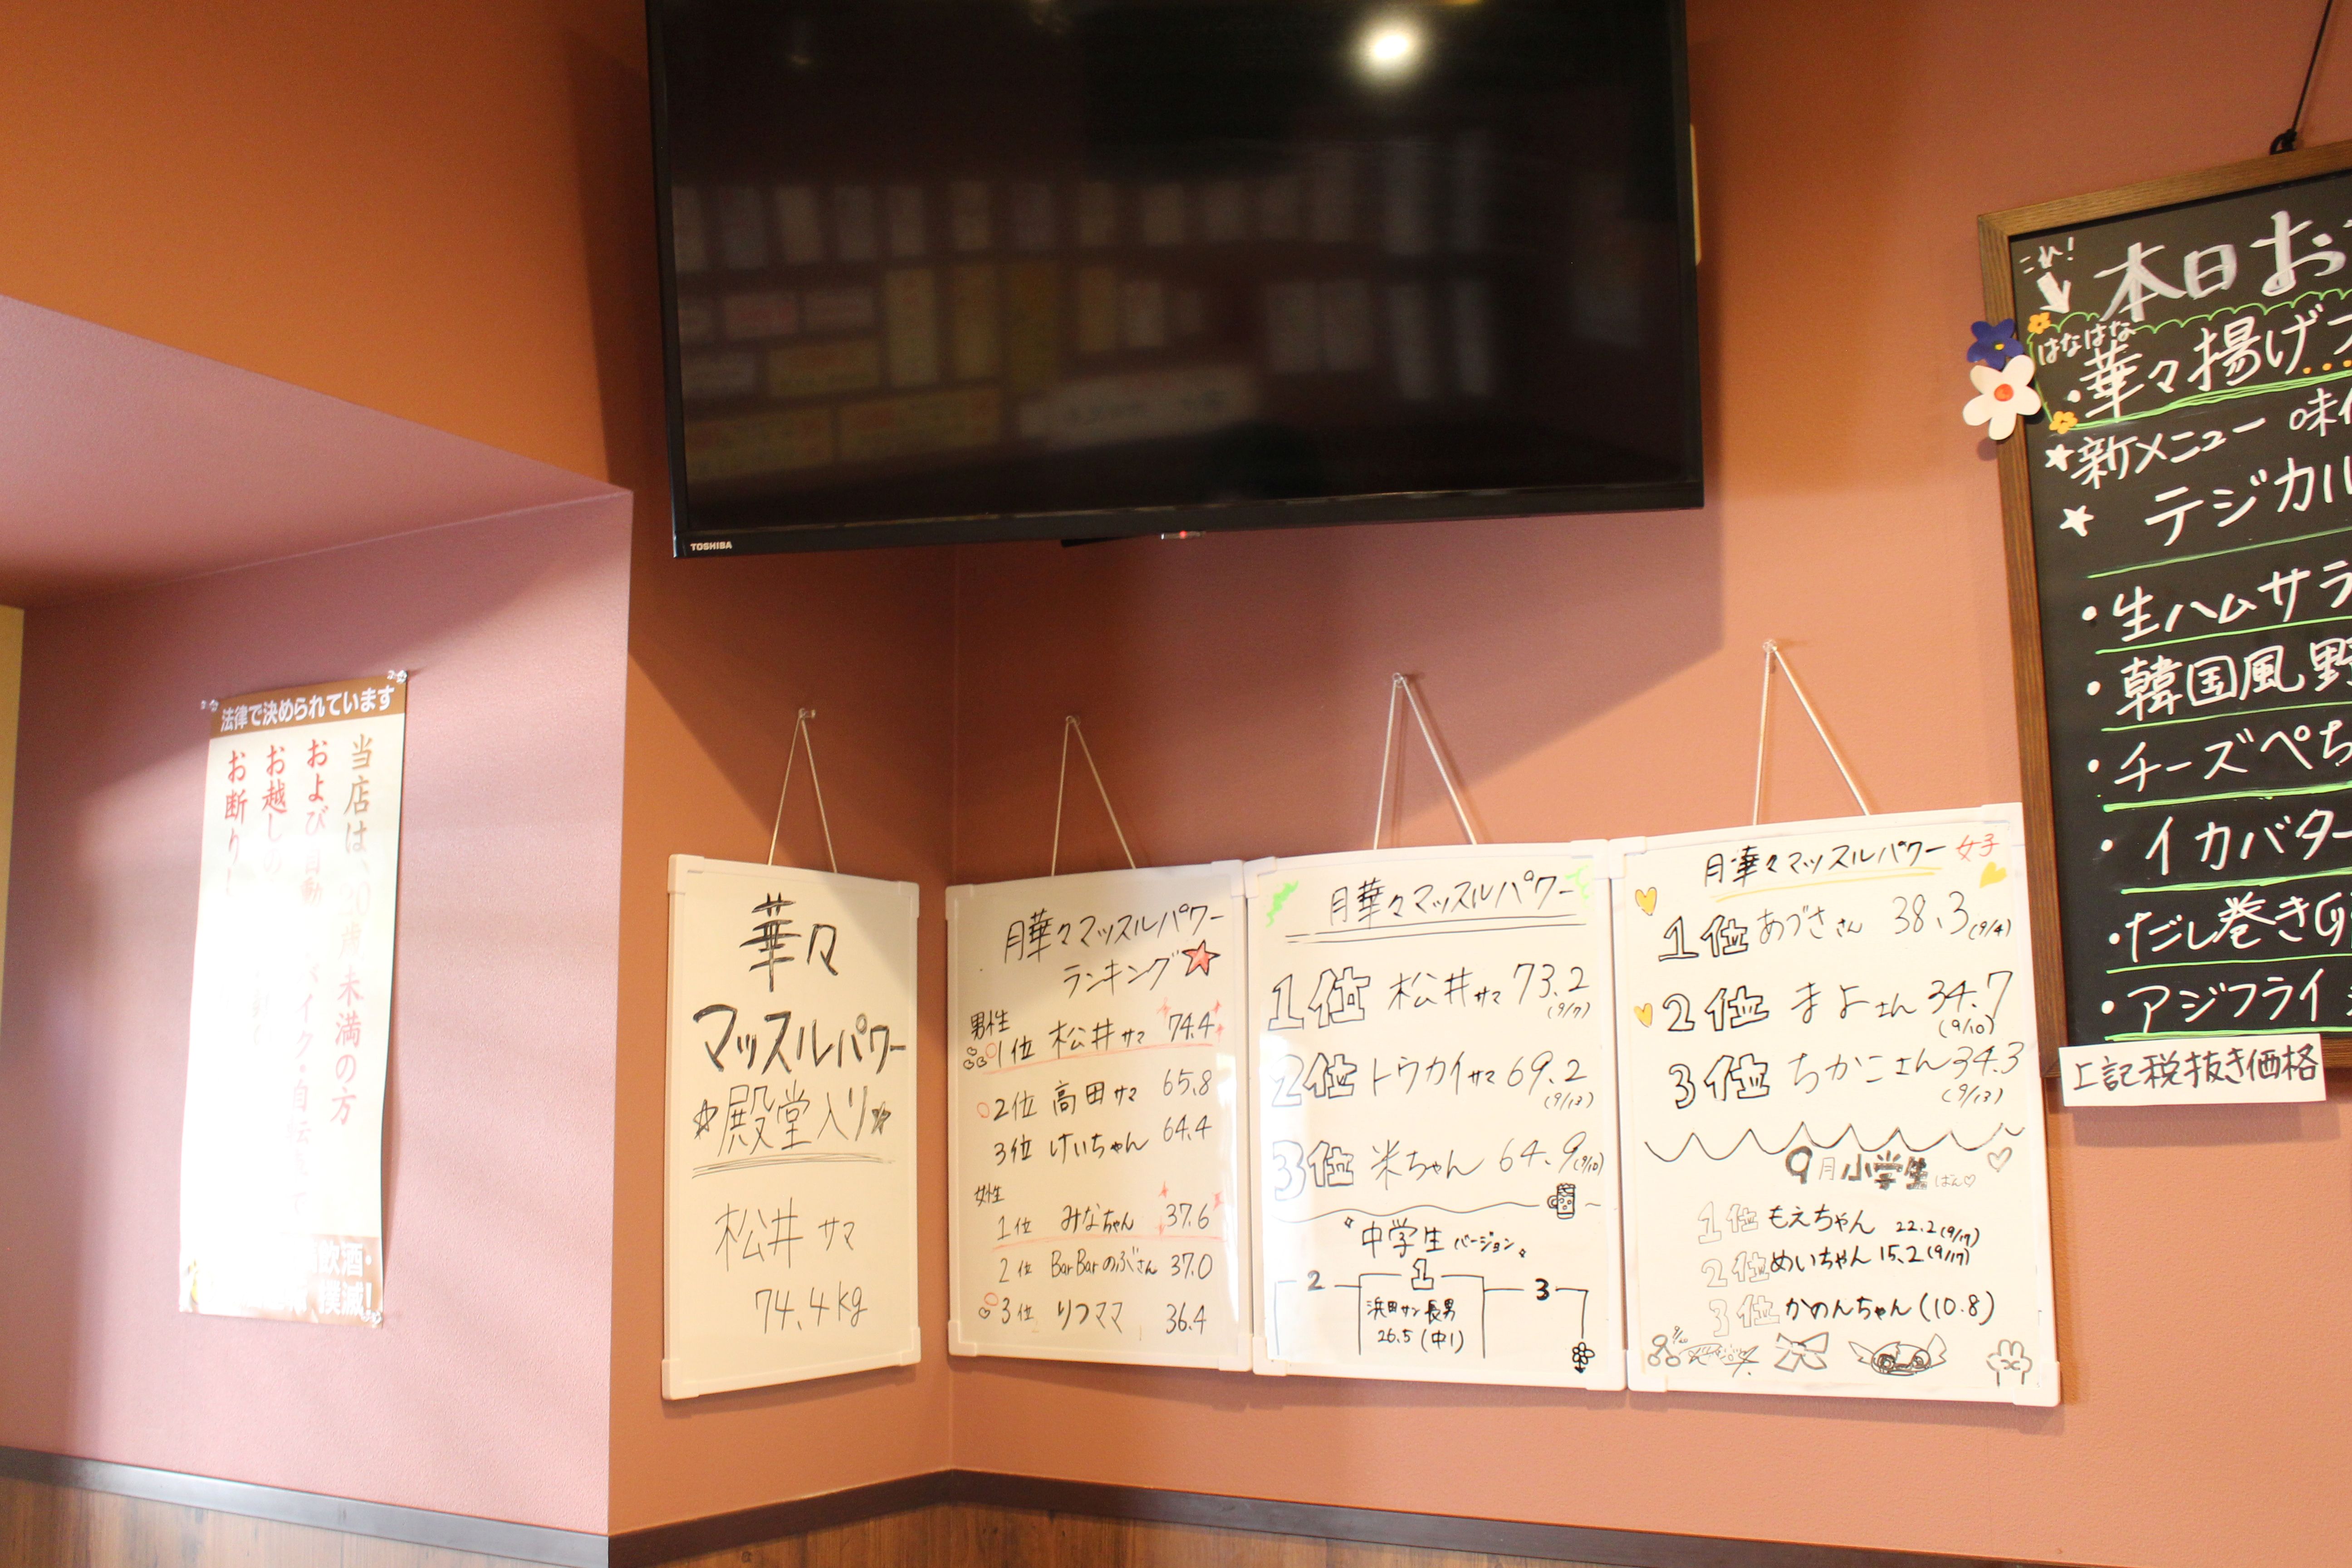 TOSHIBA
法律で決められています
当店は、20歳未満の方
および自動
バイク・自転
お越しの
お断り!
飲酒・
撲滅!
華々
マッスルパワー
☆殿堂入り☆
松井サマ
74.4kg
月華々マッスルパワー
ランキング
男性
1位 松井サマ 74.4
2位 高田サマ 65.8
3位 けいちゃん 64.4
女性
1位 みなちゃん 37.6
2位 BarBarのぶさん 37.0
3位 りつママ 36.4
月華々マッスルパワー
1位 松井サマ 73.2
(9/7)
2位 トウカイサマ 69.2
(9/13)
3位 米ちゃん 64.9(9/10)
"中学生バージョン"
2 1 3
浜田サン長男
26.5(中1)
月華々マッスルパワー 女子
1位 あづささん 38.3(9/4)
2位 まよさん 34.7
(9/10)
3位 ちかこさん 34.3
(9/13)
9月小学生ばん♡
1位 もえちゃん 22.2(9/17)
2位 めいちゃん 15.2(9/17)
3位 かのんちゃん(10.8)
これ!
本日お
はなはな
・華々揚げ
★新メニュー 味
★ テジカル
・生ハムサラ
・韓国風野
・チーズぺち
・イカバター
・だし巻き
・アジフライ
上記税抜き価格